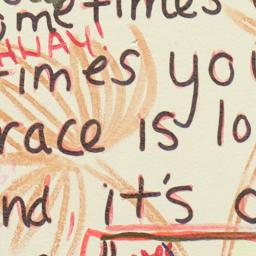 ometimes
AWAY!
times you
race is lo
nd it's